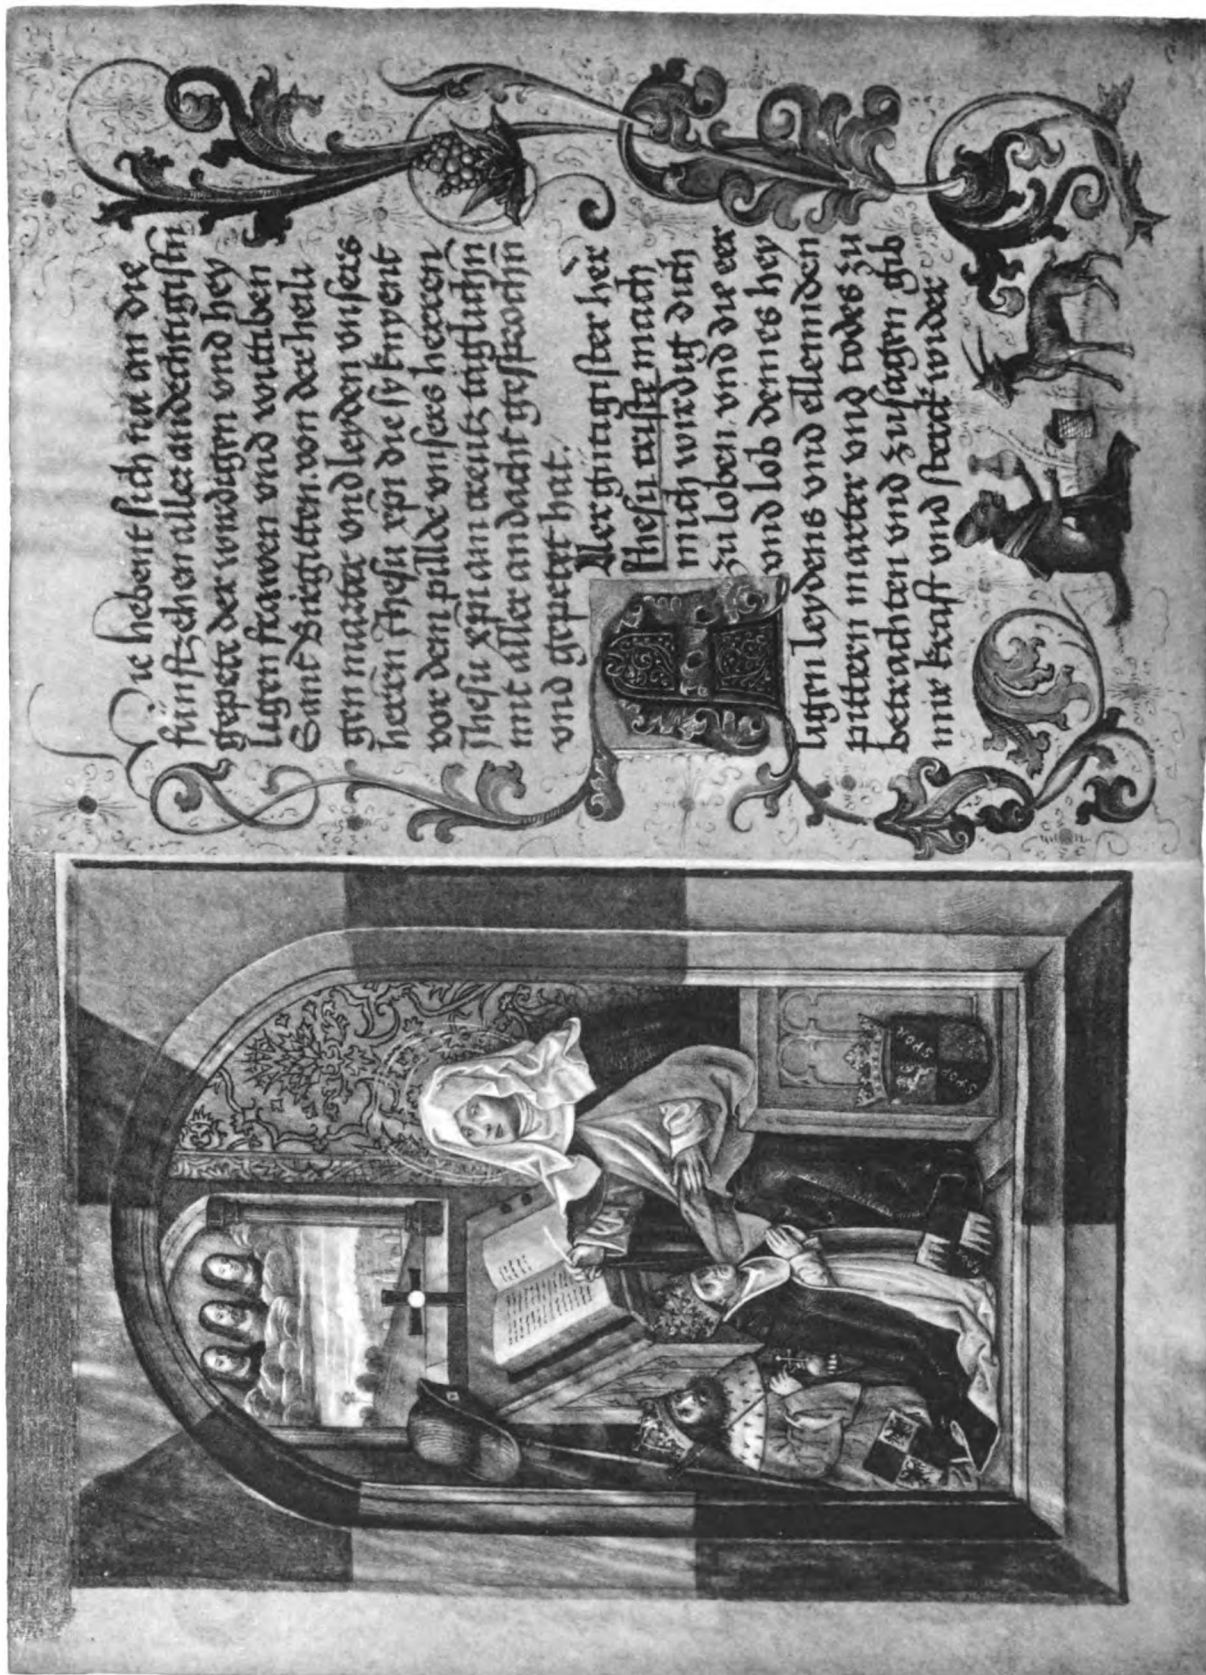 Hie hebent sich nu an die
fünftzehen aller andechtigistn̄
gepete der wirdigen vnd hey
ligen frawen vnd wittiben
Sannt Birgitten. von der heili
gen marter vnd leyden vnsers
herren Jhesu xp̄i die sy knyent
vor dem pillde vnsers herren
Jhesu xp̄i am creutz täglichn̄
mit aller andacht gesprochn̄
vnd gepetet hat.
Allergütigister her
Jhesu criste mach
mich wirdig dich
zu loben, vnd die eer
vnd lob deines hey
ligen leydens vnd ellennden
pittern marter vnd todes zu
betrachten vnd zusagen gib
mir krafft vnd sterck wider
SPQR
SPQR